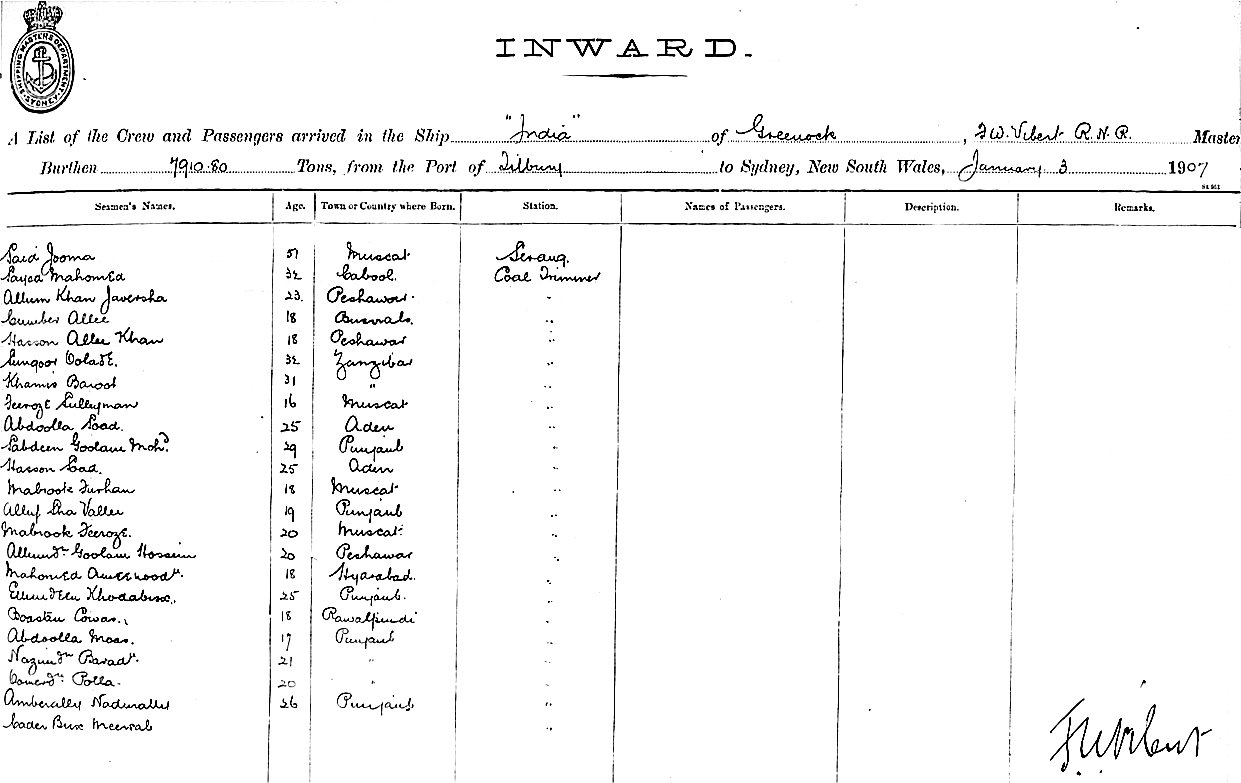 SHIPPING MASTER'S DEPARTMENT. SYDNEY.
INWARD.
A List of the Crew and Passengers arrived in the Ship "India" of Greenock, F.W. Vibert R.N.R. Master
Burthen 7910.80 Tons, from the Port of Tilbury to Sydney, New South Wales, January 3 1907
Seamen's Names. Age. Town or Country where Born. Station. Names of Passengers. Description. Remarks.
Said Jooma 51 Muscat Serang.
Sayed Mahomed 32 Cabool. Coal Trimmer
Allum Khan Javersha 23. Peshawar. "
Cumber Allee 18 "
Hasson Allee Khan 18 Peshawar "
Sungoor 32 Zanzibar "
Khamis Baroot 31 " "
Feeroze Sulleyman 16 Muscat "
Abdoolla Saad. 25 Aden "
Sabdeen Goolam Mohd. 29 Punjaub "
Hasson Sad. 25 Aden "
Mabrook Furhan 18 Muscat "
Alluf Sha Vallee 19 Punjaub "
Mabrook Feeroze. 20 Muscat "
Allumdn Goolam Hossein 20 Peshawar "
Mahomed 18 Hyarabad. "
Khodabux. 25 Punjaub. "
Boastan Cowas. 18 Rawalpindi "
Abdoolla Moos. 17 Punjaub "
21 " "
Polla. 20 " "
Amberally Nadurally 26 Punjaub "
Cader Bux Meerab "
F.W. Vibert